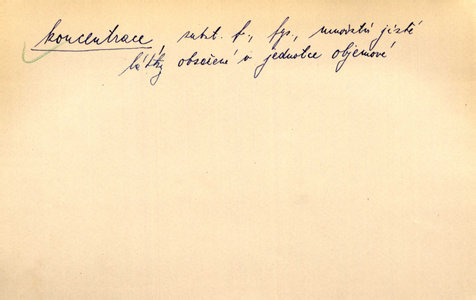 koncentrace, subst. f., fys., množství jisté
látky obsažené v jednotce objemové